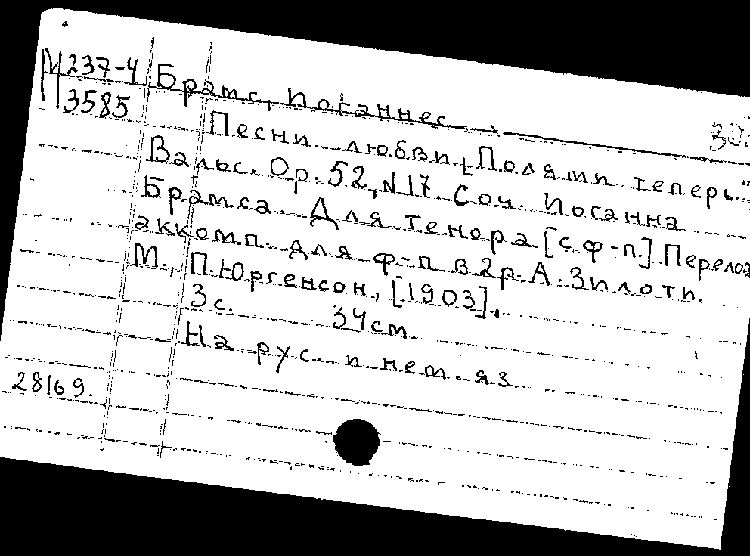 М 237-4 Брамс, Иоганнес.
3585
Песни любви „Полями теперь..."
Вальс. Ор. 52, N 17. Соч. Иоганна
Брамса. Для тенора [с ф-п.]. Перелож
аккомп. для ф-п в 2 р. А. Зилоти.
М., П. Юргенсон, [1903].
3 с. 34 см.
На рус. и нем. яз
28169.